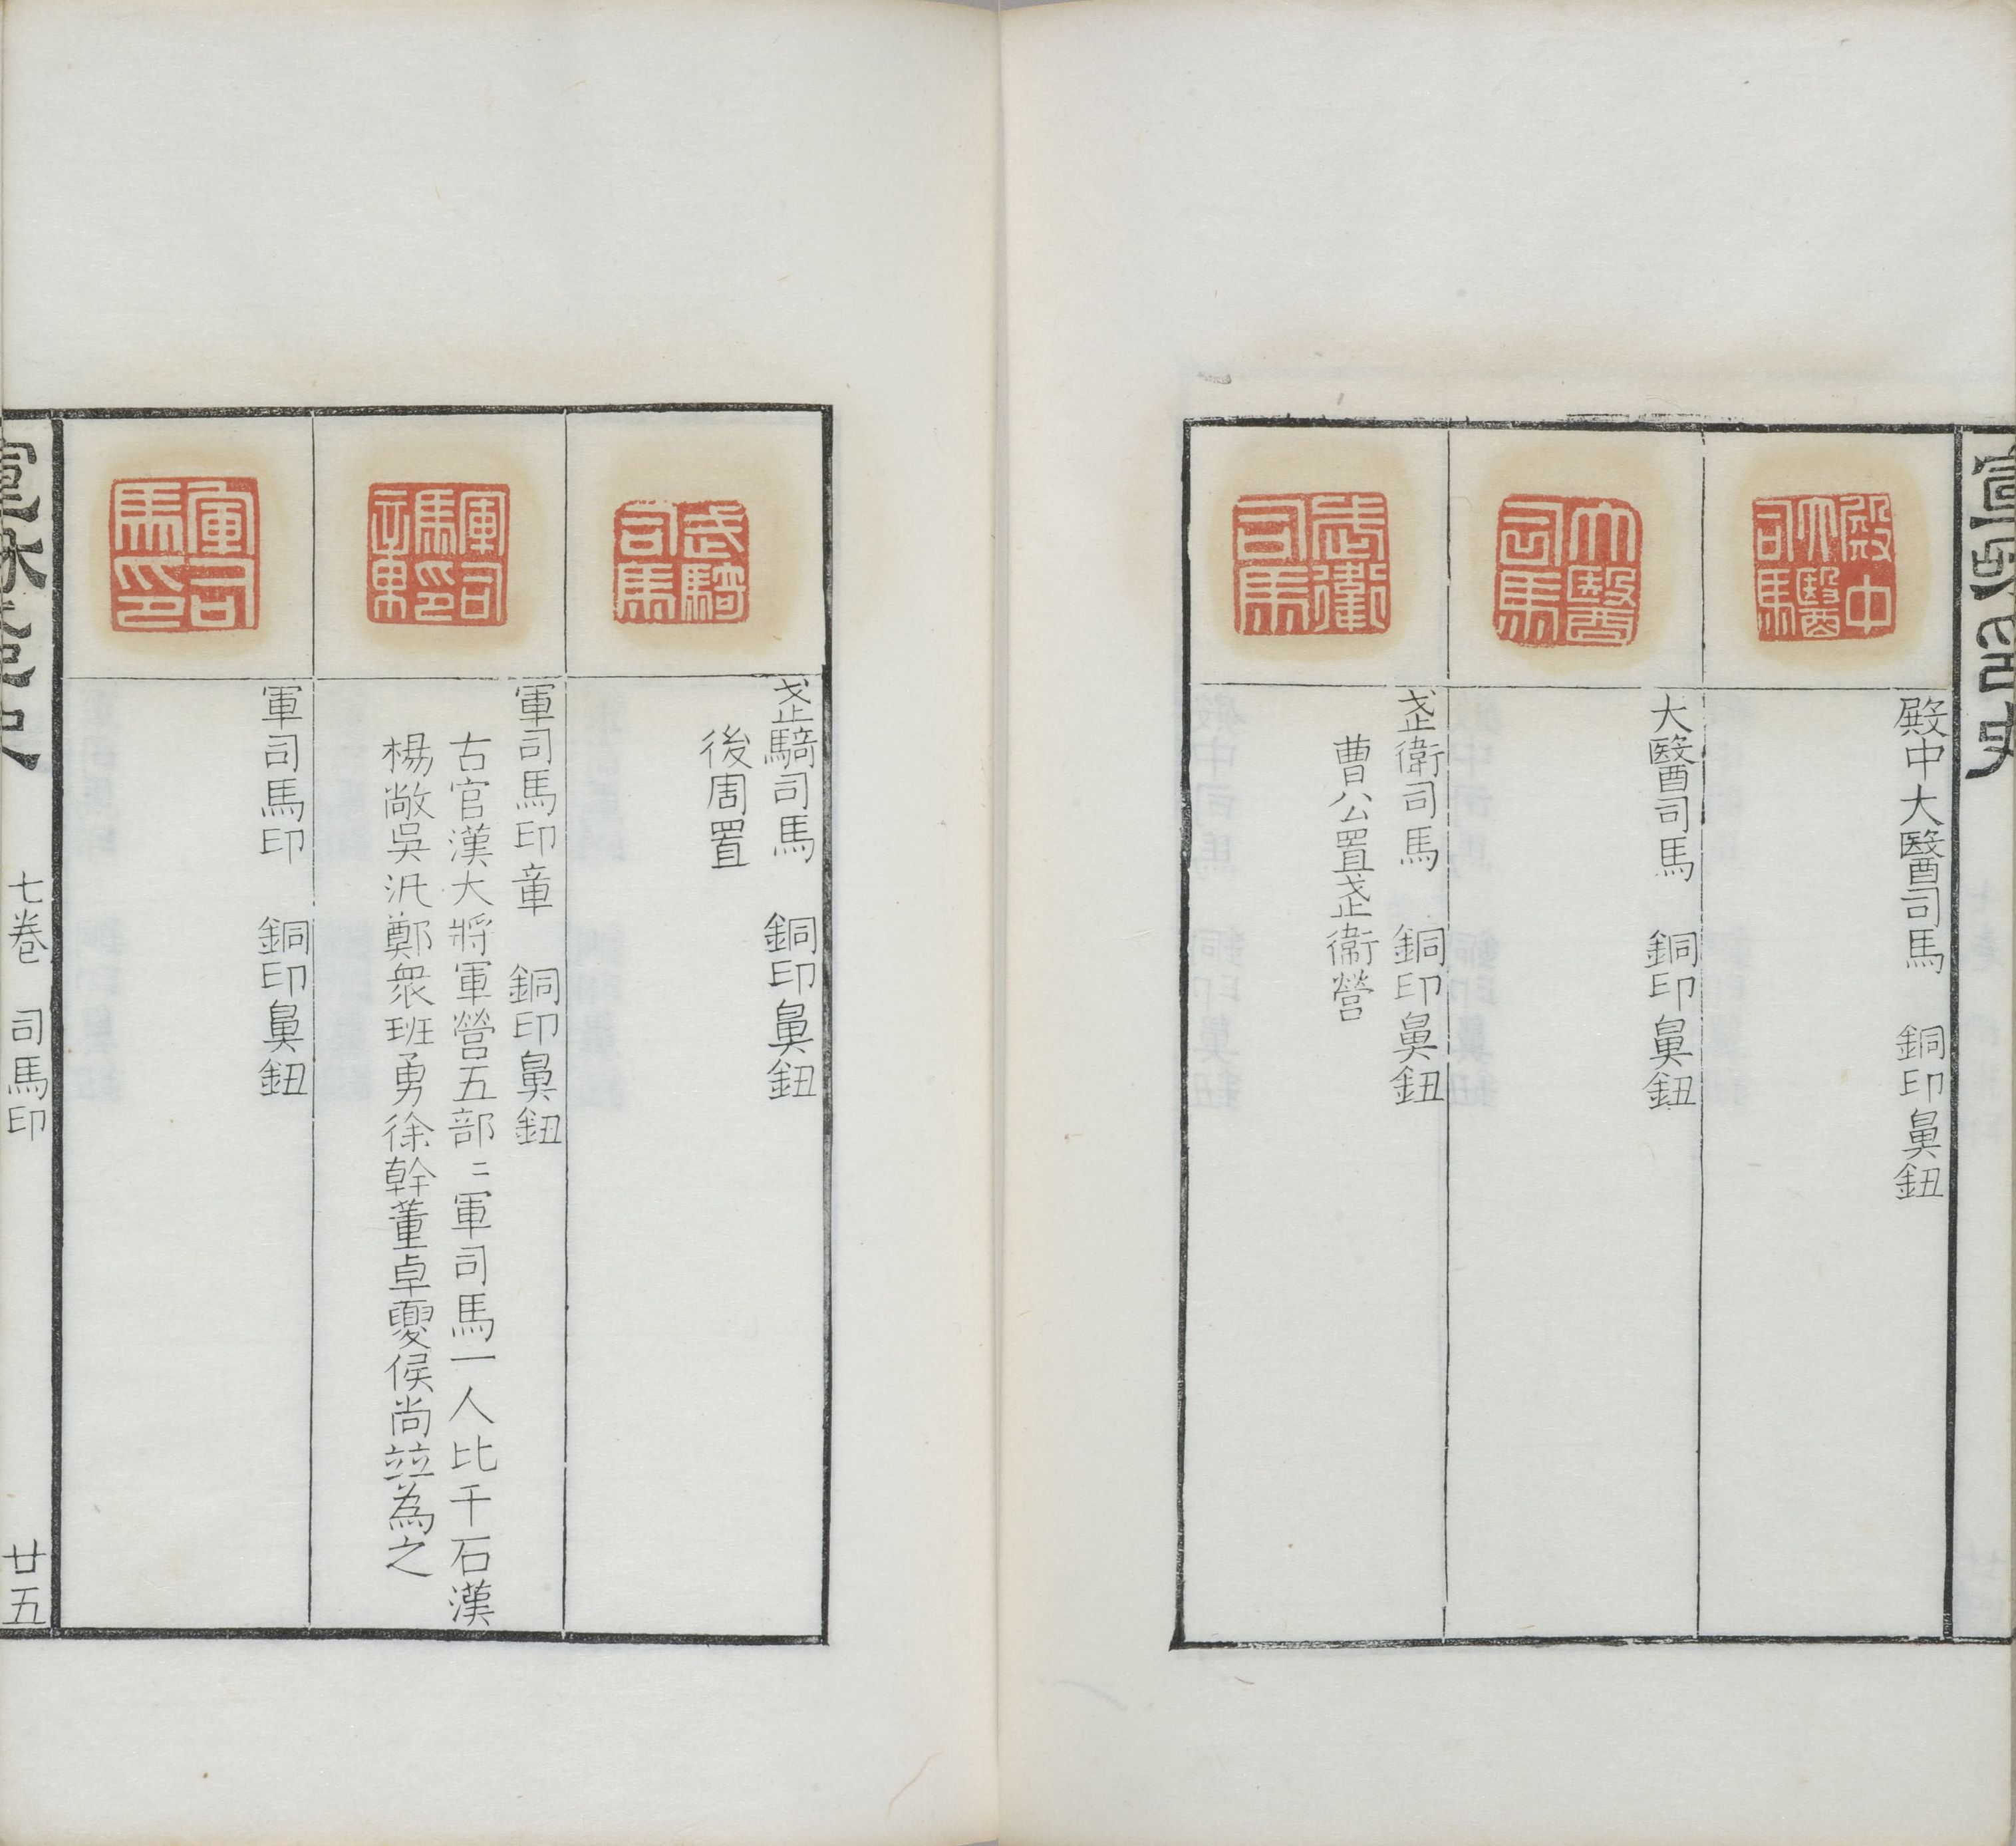 殿中大醫司馬
殿中大醫司馬　銅印鼻鈕
大醫司馬
大醫司馬　銅印鼻鈕
武衛司馬
武衛司馬　銅印鼻鈕
曹公置武衛營
武騎司馬
武騎司馬　銅印鼻鈕
後周置
軍司馬印章
軍司馬印章　銅印鼻鈕
古官漢大將軍營五部〻軍司馬一人比千石漢
楊敞吳汎鄭眾班勇徐幹董卓夏侯尚竝為之
軍司馬印
軍司馬印　銅印鼻鈕
七卷　司馬印
廿五